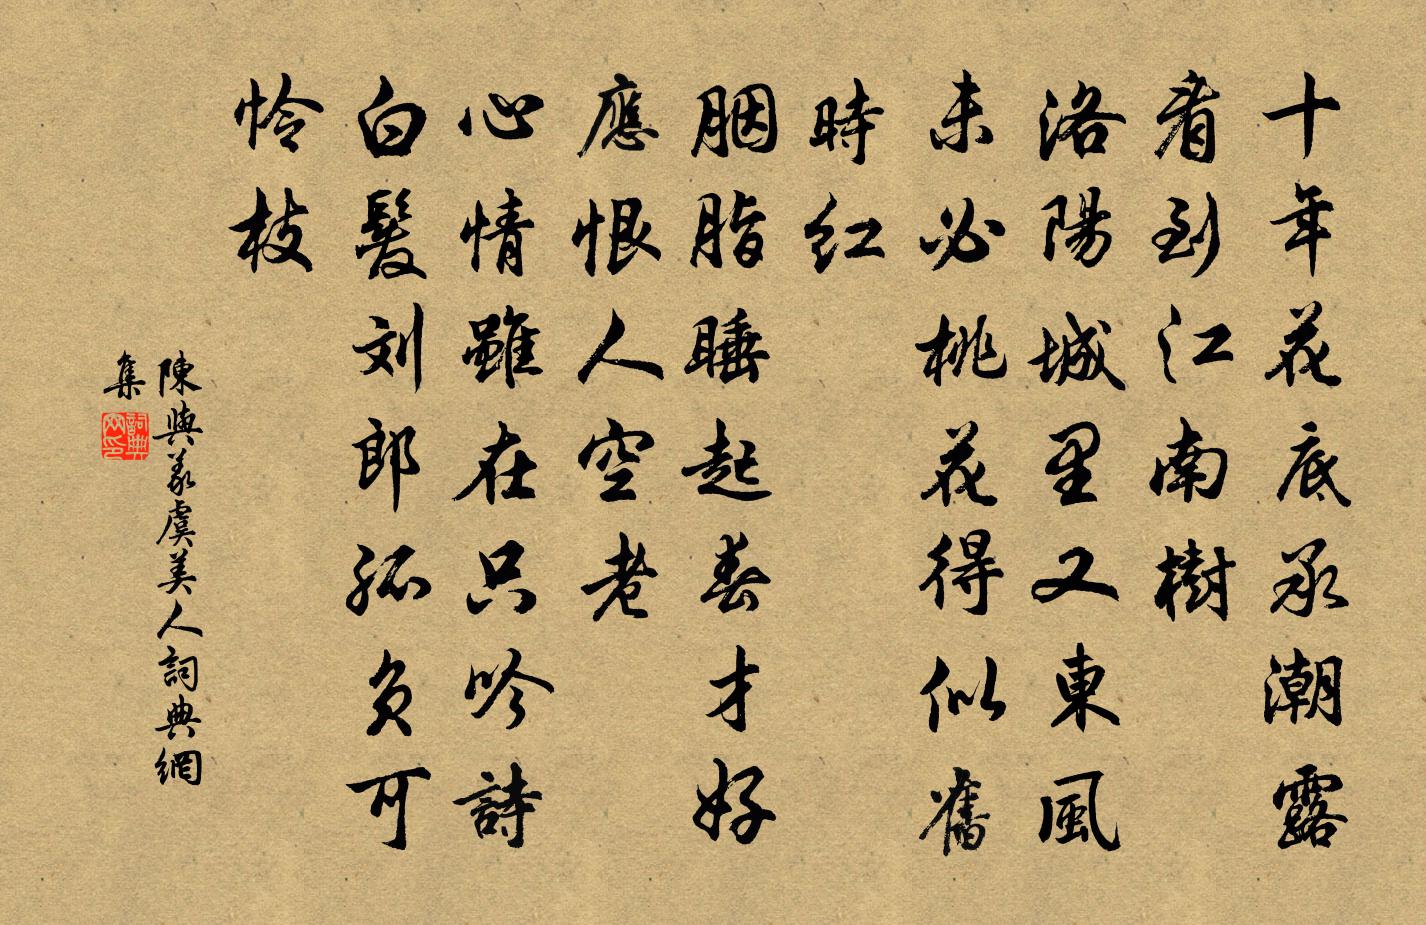 十年花底承潮露
看到江南樹
洛陽城里又東風
未必桃花得似舊
時紅
胭脂睡起春才好
應恨人空老
心情雖在只吟詩
白髮刘郎孤负可
怜枝
陳與義虞美人詞典網
集
詞典
网印